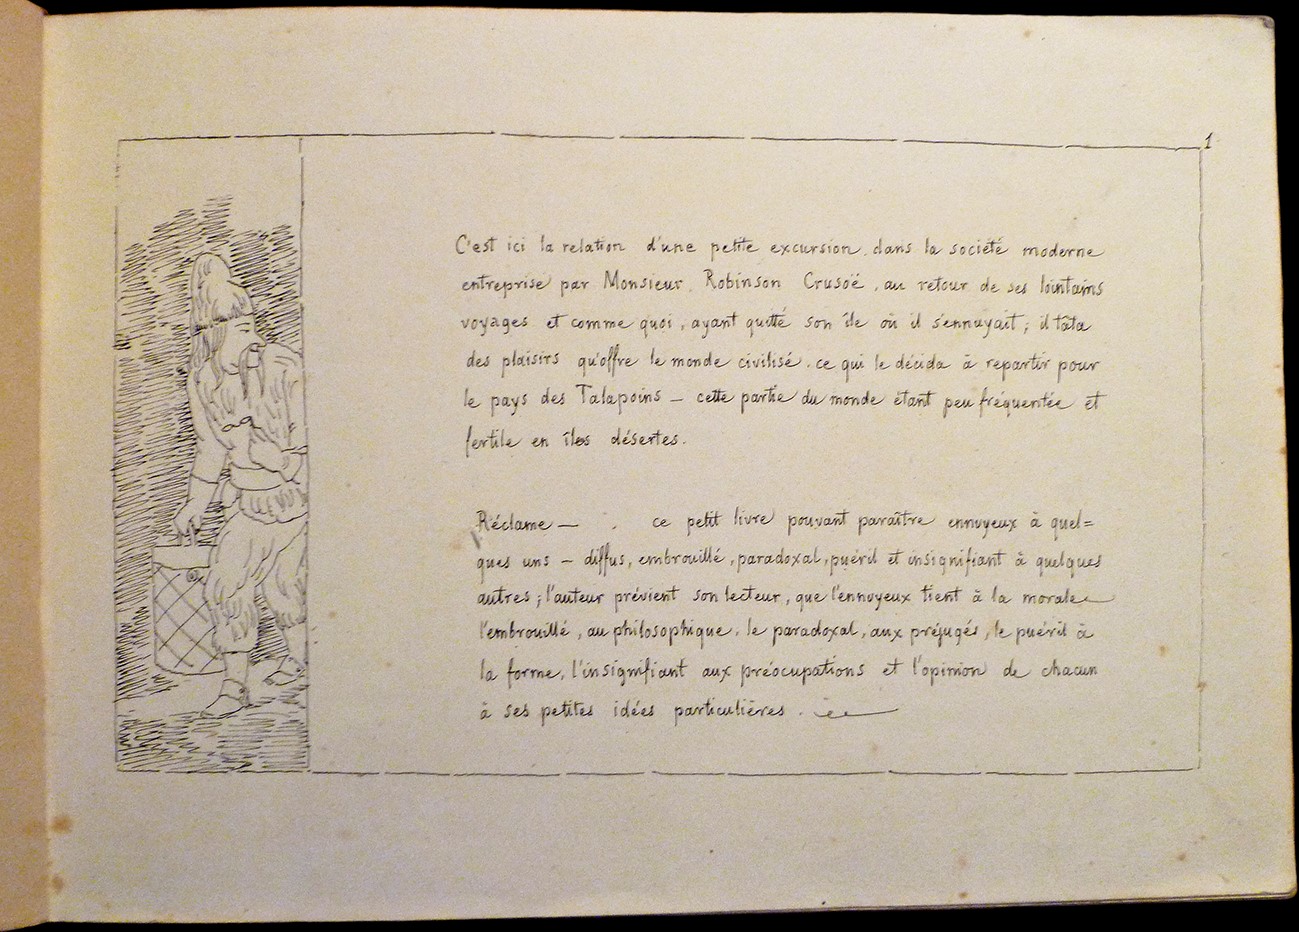 1
C'est ici la relation d'une petite excursion dans la société moderne
entreprise par Monsieur Robinson Crusöe, au retour de ses lointains
voyages et comme quoi, ayant quitté son île où il s'ennuyait; il tâta
des plaisirs qu'offre le monde civilisé. ce qui le décida à repartir pour
le pays des Talapoins — cette partie du monde étant peu fréquentée et
fertile en îles désertes.
Réclame — ce petit livre pouvant paraître ennuyeux à quel=
ques uns — diffus, embrouillé, paradoxal, puéril et insignifiant à quelques
autres; l'auteur prévient son lecteur, que l'ennuyeux tient à la morale
l'embrouillé, au philosophique, le paradoxal, aux préjugés, le puéril à
la forme, l'insignifiant aux préocupations et l'opinion de chacun
à ses petites idées particulières.